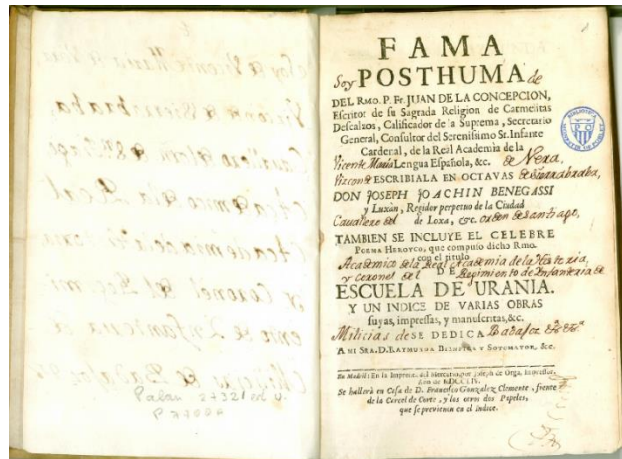 Soy de Vicente Maria de Vera,
Vizconde de Sierrabraba,
Cavallero del orden de Santiago
Academico de la Real
Academia de la Historia
y Coronel del Regimiento de Infanteria de
Milicias de Badajoz &c.
Palau 27321
FAMA
Soy POSTHUMA de
DEL RMO. P. Fr. JUAN DE LA CONCEPCION,
Escritor de su Sagrada Religion de Carmelitas
Descalzos, Calificador de la Suprema, Secretario
General, Consultor del Serenissimo Sr. Infante
Cardenal, de la Real Academia de la
Vicente Maria Lengua Española, &c. de Vera,
Vizconde ESCRIBIALA EN OCTAVAS de Sierrabraba,
DON JOSEPH JOACHIN BENEGASSI
y Luxàn, Regidor perpetuo de la Ciudad
Cavallero del de Loxa, &c. orden de Santiago,
TAMBIEN SE INCLUYE EL CELEBRE
POEMA HEROYCO, que compuso dicho Rmo.
con el titulo
Academico de la Real Academia de la Historia,
y Coronel del DE Regimiento de Infanteria de
ESCUELA DE URANIA.
Y UN INDICE DE VARIAS OBRAS
suyas, impressas, y manuscritas, &c.
Milicias de SE DEDICA Badajoz &c. &c.
A MI SRA. D. RAYMUNDA Y SOTOMAYOR, &c.
En Madrid: En la Imprenta del Mercurio, por Joseph de Orga, Impressor,
Año de MDCCLIV.
Se hallarà en Casa de D. Francisco Gonzalez Clemente, frente
de la Carcel de Corte, y los otros dos Papeles,
que se previenen en el indice.